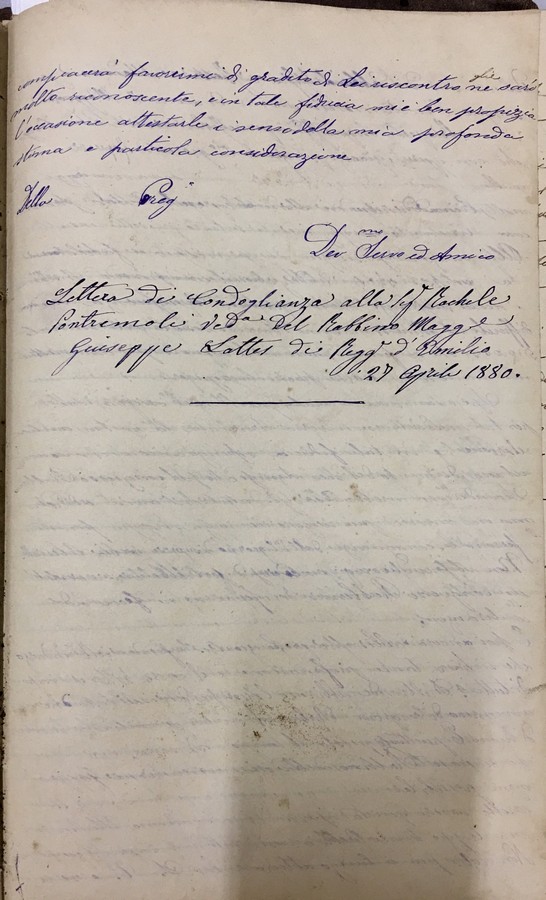 compiacerà favorirmi di gradito di Lei riscontro, gliene sarò
molto riconoscente, e in tale fiducia mi è ben propizia
l'occasione attestarle i sensi della mia profonda
stima e particola considerazione
Della Preg
Dev.mo Servo ed Amico
Lettera di Condoglianza alla Sig.ª Rachele
Pontremoli Ved.ª Del Rabbino Magg.e
Giuseppe Lattes di Regg.º d'Emilia
27 Aprile 1880.